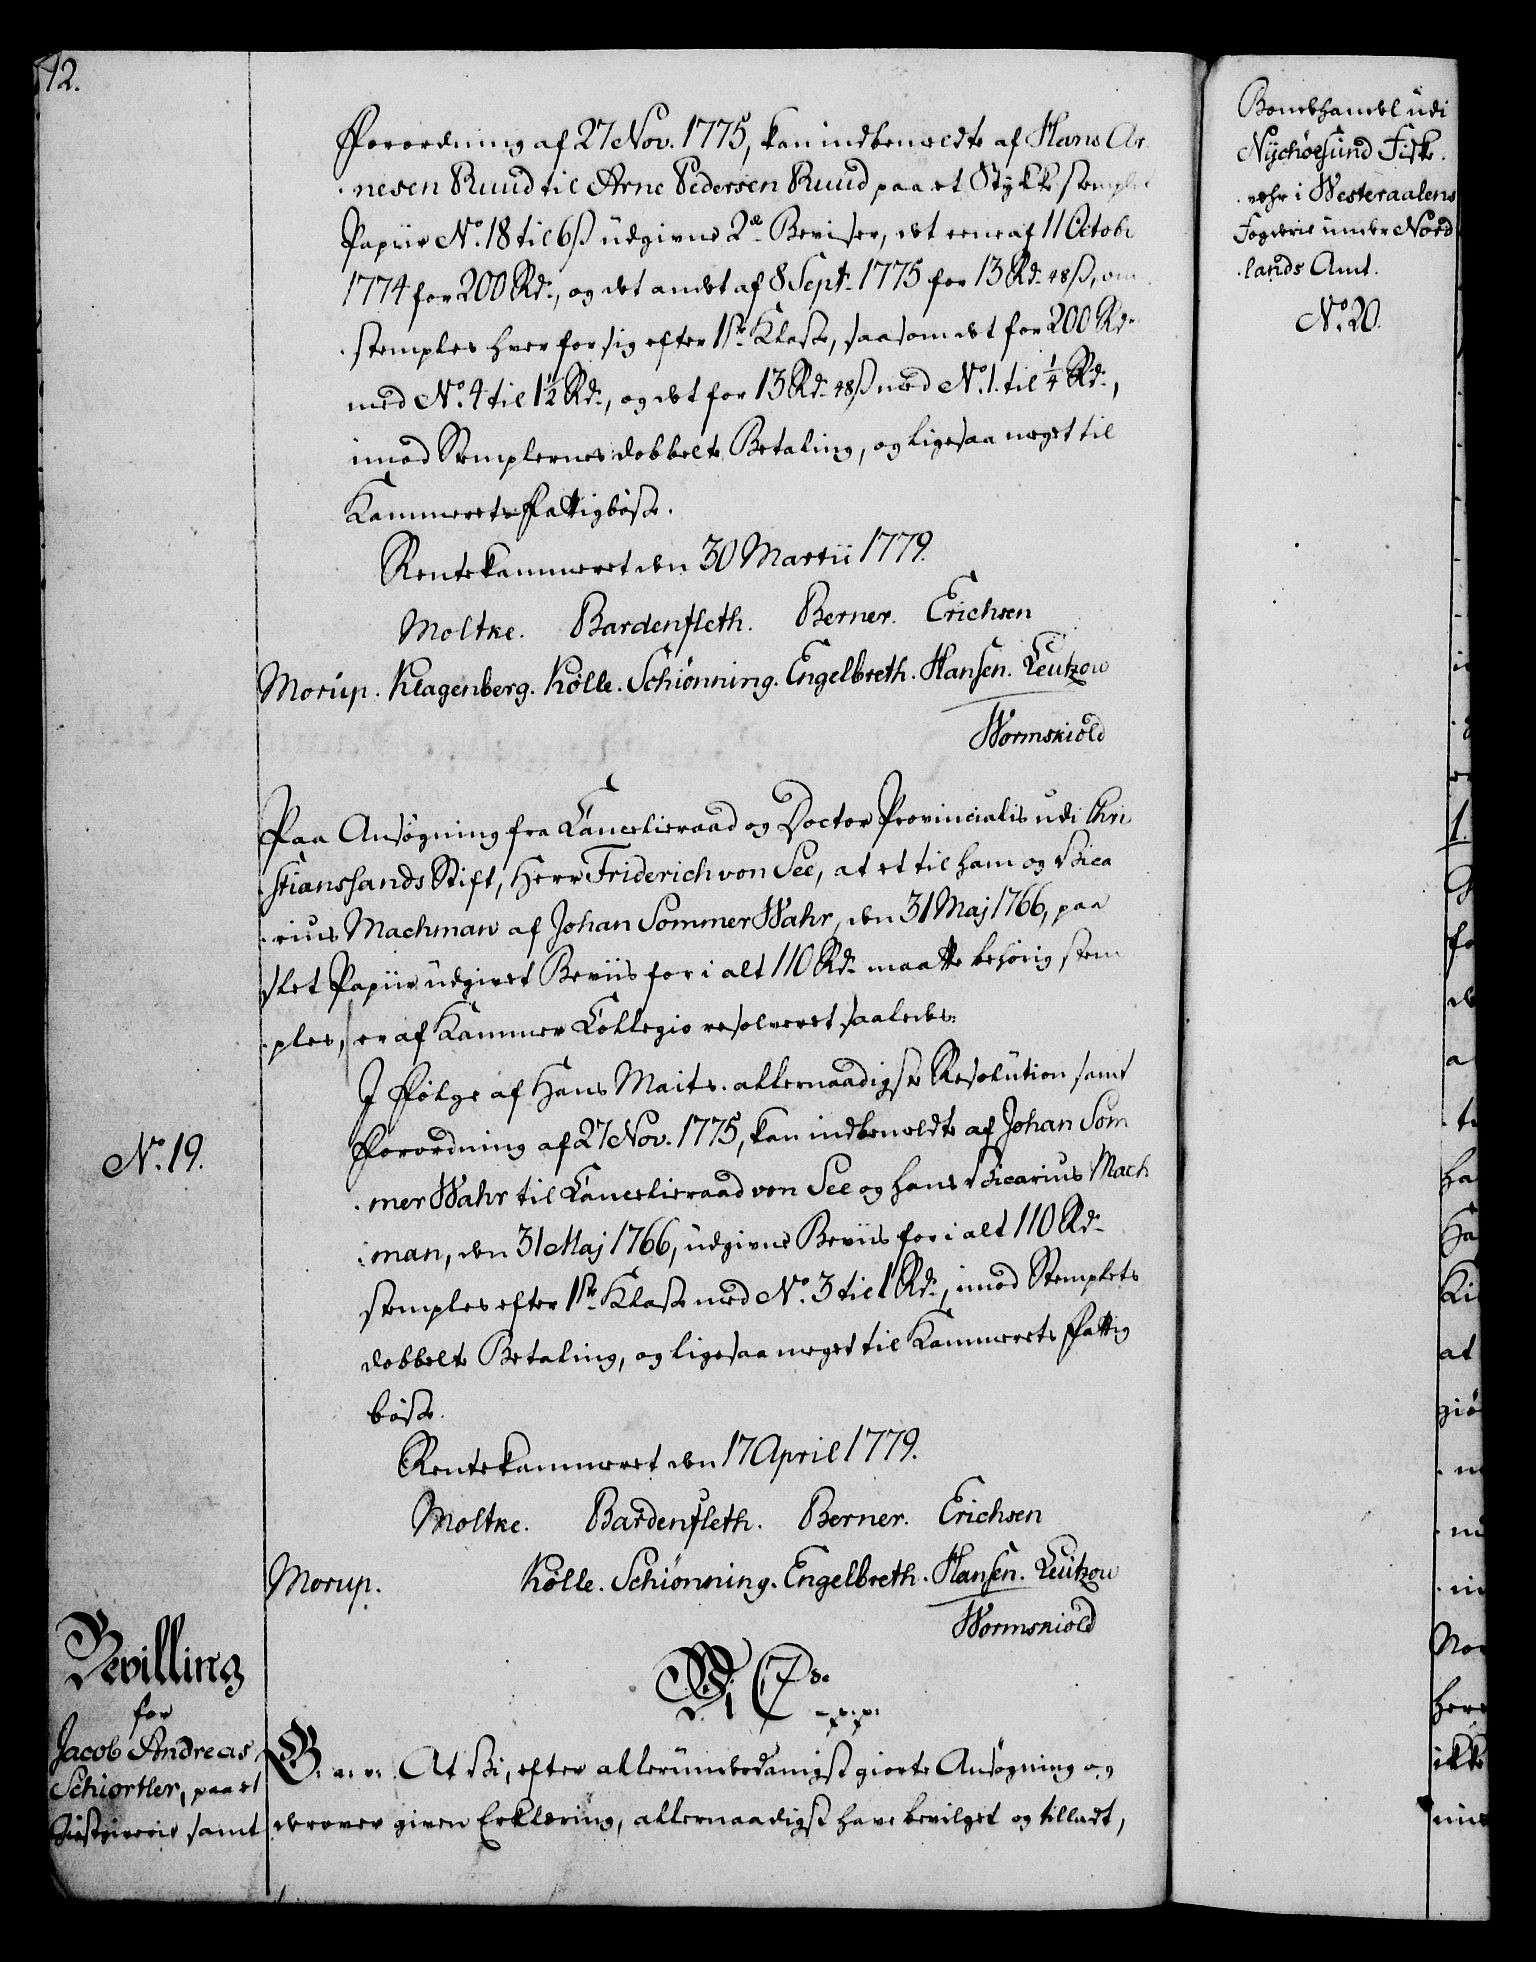 12.
Forordning af 27 Nov. 1775, kan indbemeldte af Hans Ar
nesen Ruud til Arne Pedersen Ruud paa et Stykke stemplet
Papiir No. 18 til 6 ß udgivne 2de Beviser, det eene af 11 Octobr
1774 for 200 Rdr, og det andet af 8 Septr 1775 for 13 Rdr 48 ß, om
stemples hver for sig efter 1ste Klasse, saasom det for 200 Rdr
med No. 4 til 1½ Rdr, og det for 13 Rdr 48 ß med No. 1. til ¼ Rdr,
imod Stemplernes dobbelte Betaling, og ligesaa meget til
Kammerets Fattigbösse.
Rentekammeret den 30 Martii 1779.
Moltke. Bardenfleth. Berner. Erichsen
Morup. Klagenberg. Kölle. Schiönning. Engelbreth. Hansen. Leutzow
Wormskiold
Paa Ansögning fra Cancelieraad og Doctor Provincialis udi Chri
stianssands Stift, Herr Friderich von See, at et til ham og Vica
rius Machman af Johan Sommer Wahr, den 31 Maj 1766, paa
slet Papiir udgivet Beviis for i alt 110 Rdr maatte behörig stem
ples, er af Kammer Collegio resolveret saaledes:
No. 19.
I Fölge af Hans Maits. allernaadigste Resolution samt
Forordning af 27 Nov. 1775, kan indbemeldte af Johan Som
mer Wahr til Cancelieraad von See og hans Vicarius Mach
man, den 31 Maj 1766, udgivne Beviis for i alt 110 Rdr
stemples efter 1ste Klasse med No. 3 til 1 Rdr, imod Stemplets
dobbelte Betaling, og ligesaa meget til Kammerets Fattig
bösse.
Rentekammeret den 17 April 1779.
Moltke. Bardenfleth. Berner. Erichsen
Morup. Kölle. Schiönning. Engelbreth. Hansen. Leutzow
Wormskiold
Vi C 7de p.p.
G. a. v: At Vi, efter allerunderdanigst giorte Ansögning og
derover given Erklæring, allernaadigst have bevilget og tilladt,
Bevilling
for
Jacob Andreas
Schiortler, paa et
Giestgiverie samt
Bondehandel udi
Nychöesund Fiske
vehr i Westeraalens
Fogderie under Nord
lands Amt.
No. 20.